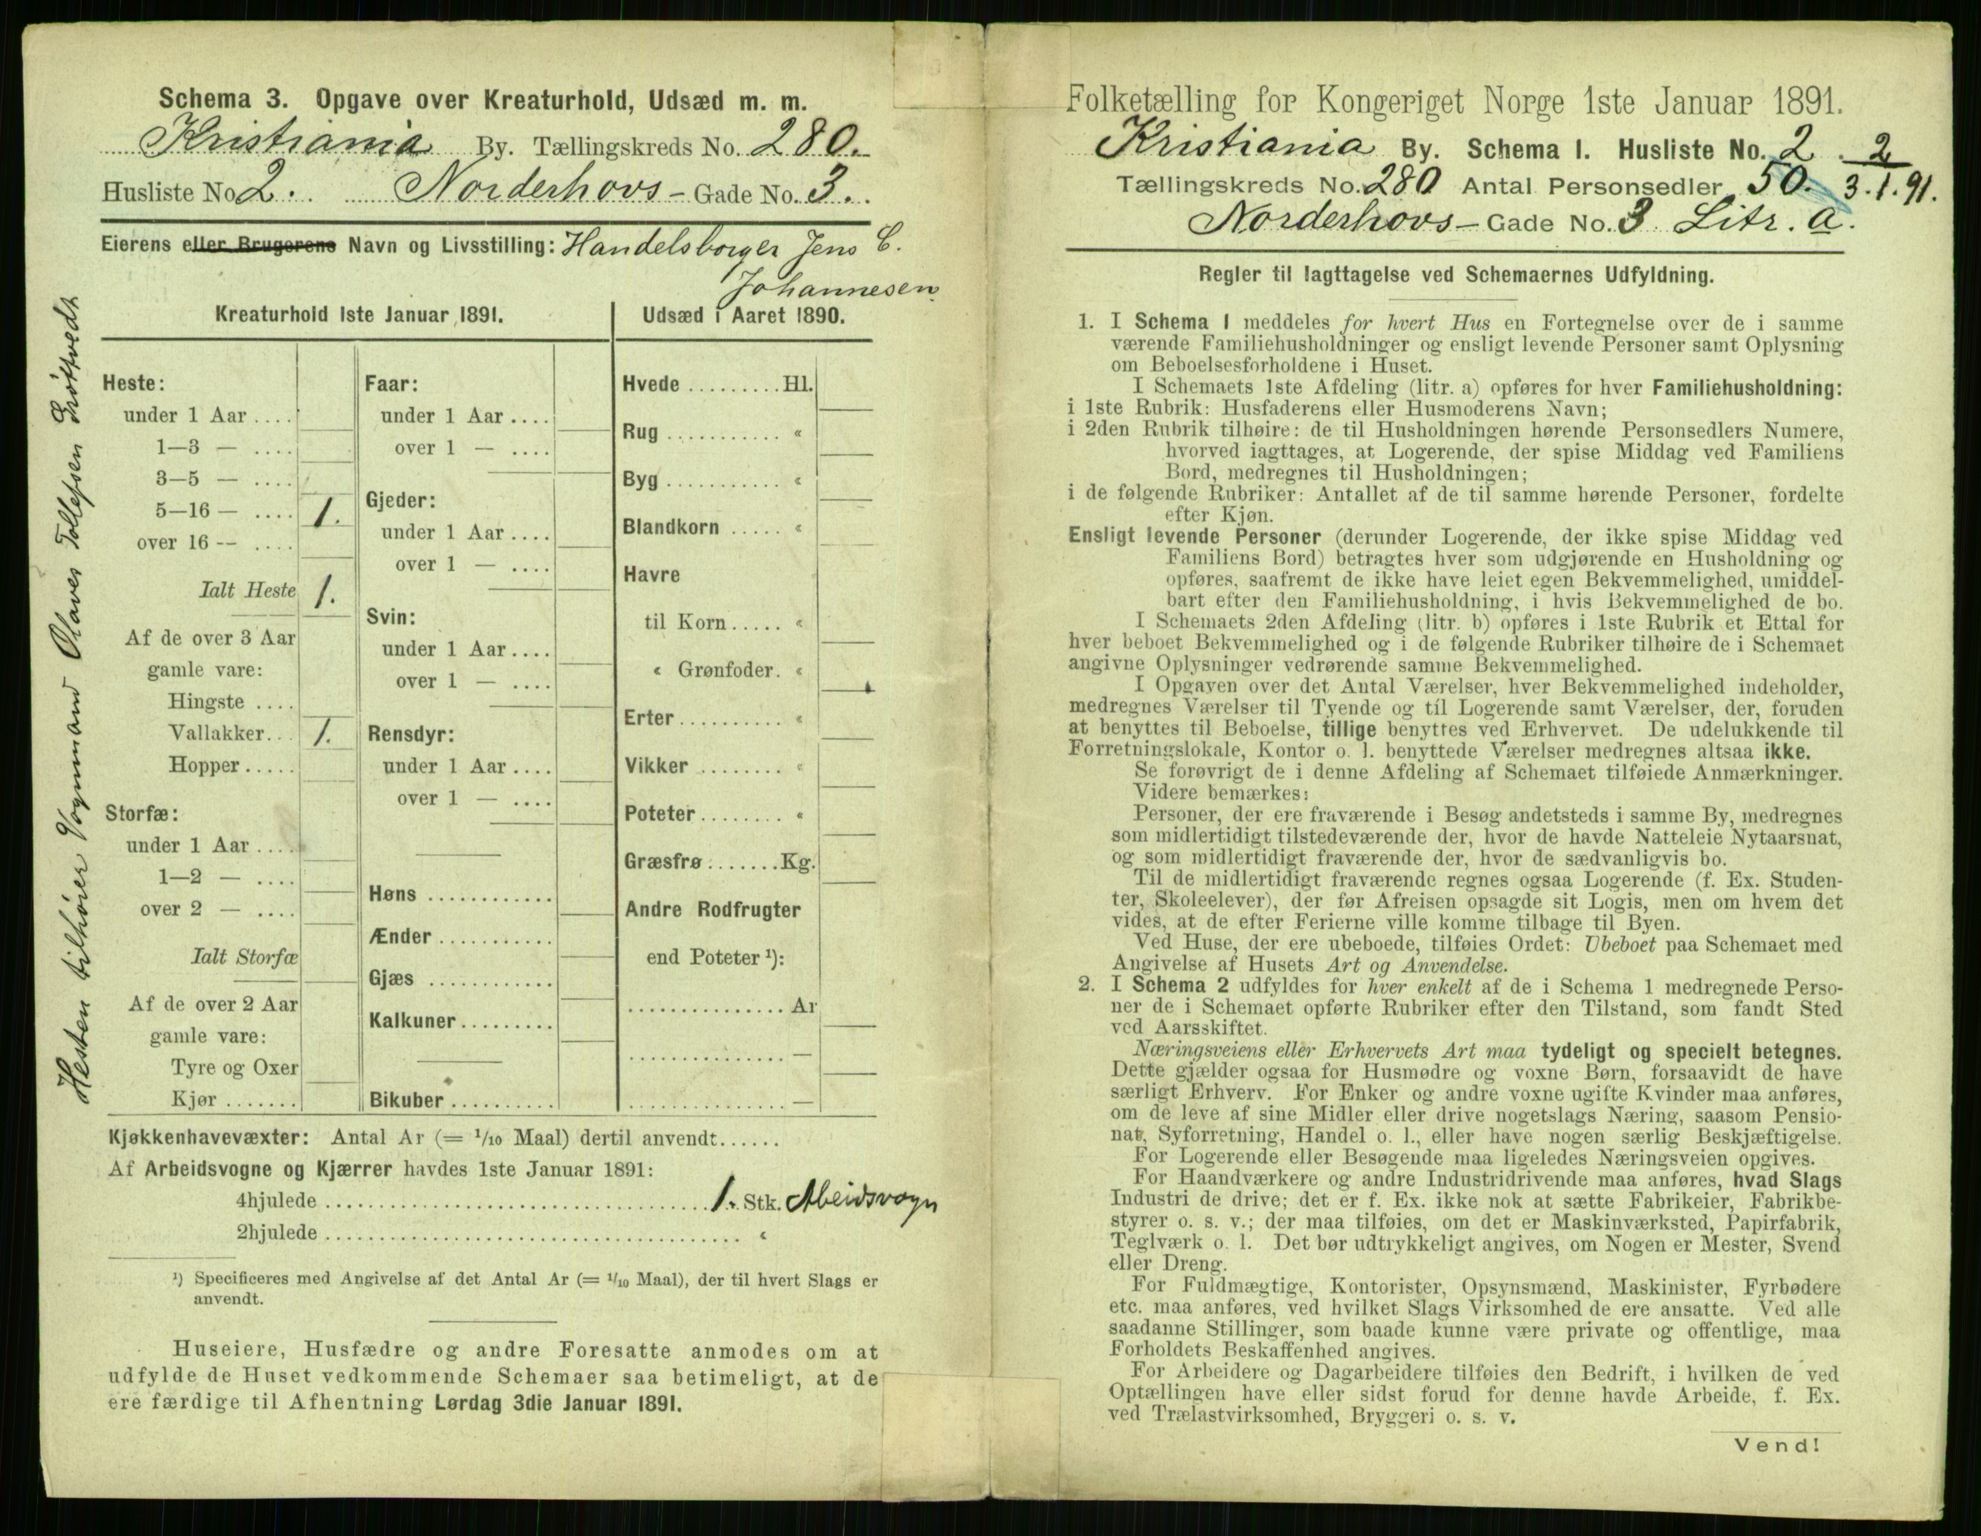 Schema 3. Opgave over Kreaturhold, Udsæd m. m.
Kristiania By. Tællingskreds No. 280.
Husliste No 2. Norderhovs - Gade No. 3.
Eierens eller Brugerens Navn og Livsstilling: Handelsborger Jens C.
Johannesen
Kreaturhold 1ste Januar 1891.
Heste:
under 1 Aar ....
1—3 — ....
3—5 — ....
5—16 — .... 1.
over 16 -- ....
Ialt Heste 1.
Af de over 3 Aar
gamle vare:
Hingste ....
Vallakker... 1.
Hopper.....
Storfæ:
under 1 Aar ....
1—2 — ....
over 2 — ....
Ialt Storfæ
Af de over 2 Aar
gamle vare:
Tyre og Oxer
Kjør .......
Faar:
under 1 Aar ....
over 1 — ....
Gjeder:
under 1 Aar ....
over 1 — ....
Svin:
under 1 Aar ....
over 1 — ....
Rensdyr:
under 1 Aar ....
over 1 — ....
Høns ............
Ænder ...........
Gjæs ............
Kalkuner.........
Bikuber ..........
Udsæd i Aaret 1890.
Hvede .........Hl.
Rug ........... «
Byg ........... «
Blandkorn ..... «
Havre
til Korn..... «
« Grønfoder. «
Erter.......... «
Vikker ........ «
Poteter........ «
Græsfrø .......Kg.
Andre Rodfrugter
end Poteter ¹):
............... Ar
............... —
............... —
Hesten tilhører Vognmand Olaves Tollefsen Grøttvedt
Kjøkkenhavevæxter: Antal Ar (= 1/10 Maal) dertil anvendt......
Af Arbeidsvogne og Kjærrer havdes 1ste Januar 1891:
4hjulede ..................................... 1. Stk. Abeidsvogn
2hjulede ........................................ «
¹) Specificeres med Angivelse af det Antal Ar (= 1/10 Maal), der til hvert Slags er
anvendt.
Huseiere, Husfædre og andre Foresatte anmodes om at
udfylde de Huset vedkommende Schemaer saa betimeligt, at de
ere færdige til Afhentning Lørdag 3die Januar 1891.
Folketælling for Kongeriget Norge 1ste Januar 1891.
Kristiania By. Schema I. Husliste No. 2. 2
Tællingskreds No. 280 Antal Personsedler 50. 3.1.91.
Norderhovs - Gade No. 3 Litr. a.
Regler til Iagttagelse ved Schemaernes Udfyldning.
1. I Schema I meddeles for hvert Hus en Fortegnelse over de i samme
værende Familiehusholdninger og ensligt levende Personer samt Oplysning
om Beboelsesforholdene i Huset.
I Schemaets 1ste Afdeling (litr. a) opføres for hver Familiehusholdning:
i 1ste Rubrik: Husfaderens eller Husmoderens Navn;
i 2den Rubrik tilhøire: de til Husholdningen hørende Personsedlers Numere,
hvorved iagttages, at Logerende, der spise Middag ved Familiens
Bord, medregnes til Husholdningen;
i de følgende Rubriker: Antallet af de til samme hørende Personer, fordelte
efter Kjøn.
Ensligt levende Personer (derunder Logerende, der ikke spise Middag ved
Familiens Bord) betragtes hver som udgjørende en Husholdning og
opføres, saafremt de ikke have leiet egen Bekvemmelighed, umiddel-
bart efter den Familiehusholdning, i hvis Bekvemmelighed de bo.
I Schemaets 2den Afdeling (litr. b) opføres i 1ste Rubrik et Ettal for
hver beboet Bekvemmelighed og i de følgende Rubriker tilhøire de i Schemaet
angivne Oplysninger vedrørende samme Bekvemmelighed.
I Opgaven over det Antal Værelser, hver Bekvemmelighed indeholder,
medregnes Værelser til Tyende og til Logerende samt Værelser, der, foruden
at benyttes til Beboelse, tillige benyttes ved Erhvervet. De udelukkende til
Forretningslokale, Kontor o. l. benyttede Værelser medregnes altsaa ikke.
Se forøvrigt de i denne Afdeling af Schemaet tilføiede Anmærkninger.
Videre bemærkes:
Personer, der ere fraværende i Besøg andetsteds i samme By, medregnes
som midlertidigt tilstedeværende der, hvor de havde Natteleie Nytaarsnat,
og som midlertidigt fraværende der, hvor de sædvanligvis bo.
Til de midlertidigt fraværende regnes ogsaa Logerende (f. Ex. Studen-
ter, Skoleelever), der før Afreisen opsagde sit Logis, men om hvem det
vides, at de efter Ferierne ville komme tilbage til Byen.
Ved Huse, der ere ubeboede, tilføies Ordet: Ubeboet paa Schemaet med
Angivelse af Husets Art og Anvendelse.
2. I Schema 2 udfyldes for hver enkelt af de i Schema 1 medregnede Perso-
ner de i Schemaet opførte Rubriker efter den Tilstand, som fandt Sted
ved Aarsskiftet.
Næringsveiens eller Erhvervets Art maa tydeligt og specielt betegnes.
Dette gjælder ogsaa for Husmødre og voxne Børn, forsaavidt de have
særligt Erhverv. For Enker og andre voxne ugifte Kvinder maa anføres,
om de leve af sine Midler eller drive nogetslags Næring, saasom Pensio-
nat, Syforretning, Handel o. l., eller have nogen særlig Beskjæftigelse.
For Logerende eller Besøgende maa ligeledes Næringsveien opgives.
For Haandværkere og andre Industridrivende maa anføres, hvad Slags
Industri de drive; det er f. Ex. ikke nok at sætte Fabrikeier, Fabrikbe-
styrer o. s. v.; der maa tilføies, om det er Maskinværksted, Papirfabrik,
Teglværk o. l. Det bør udtrykkeligt angives, om Nogen er Mester, Svend
eller Dreng.
For Fuldmægtige, Kontorister, Opsynsmænd, Maskinister, Fyrbødere
etc. maa anføres, ved hvilket Slags Virksomhed de ere ansatte. Ved alle
saadanne Stillinger, som baade kunne være private og offentlige, maa
Forholdets Beskaffenhed angives.
For Arbeidere og Dagarbeidere tilføies den Bedrift, i hvilken de ved
Optællingen have eller sidst forud for denne havde Arbeide, f. Ex.
ved Trælastvirksomhed, Bryggeri o. s. v.
Vend!